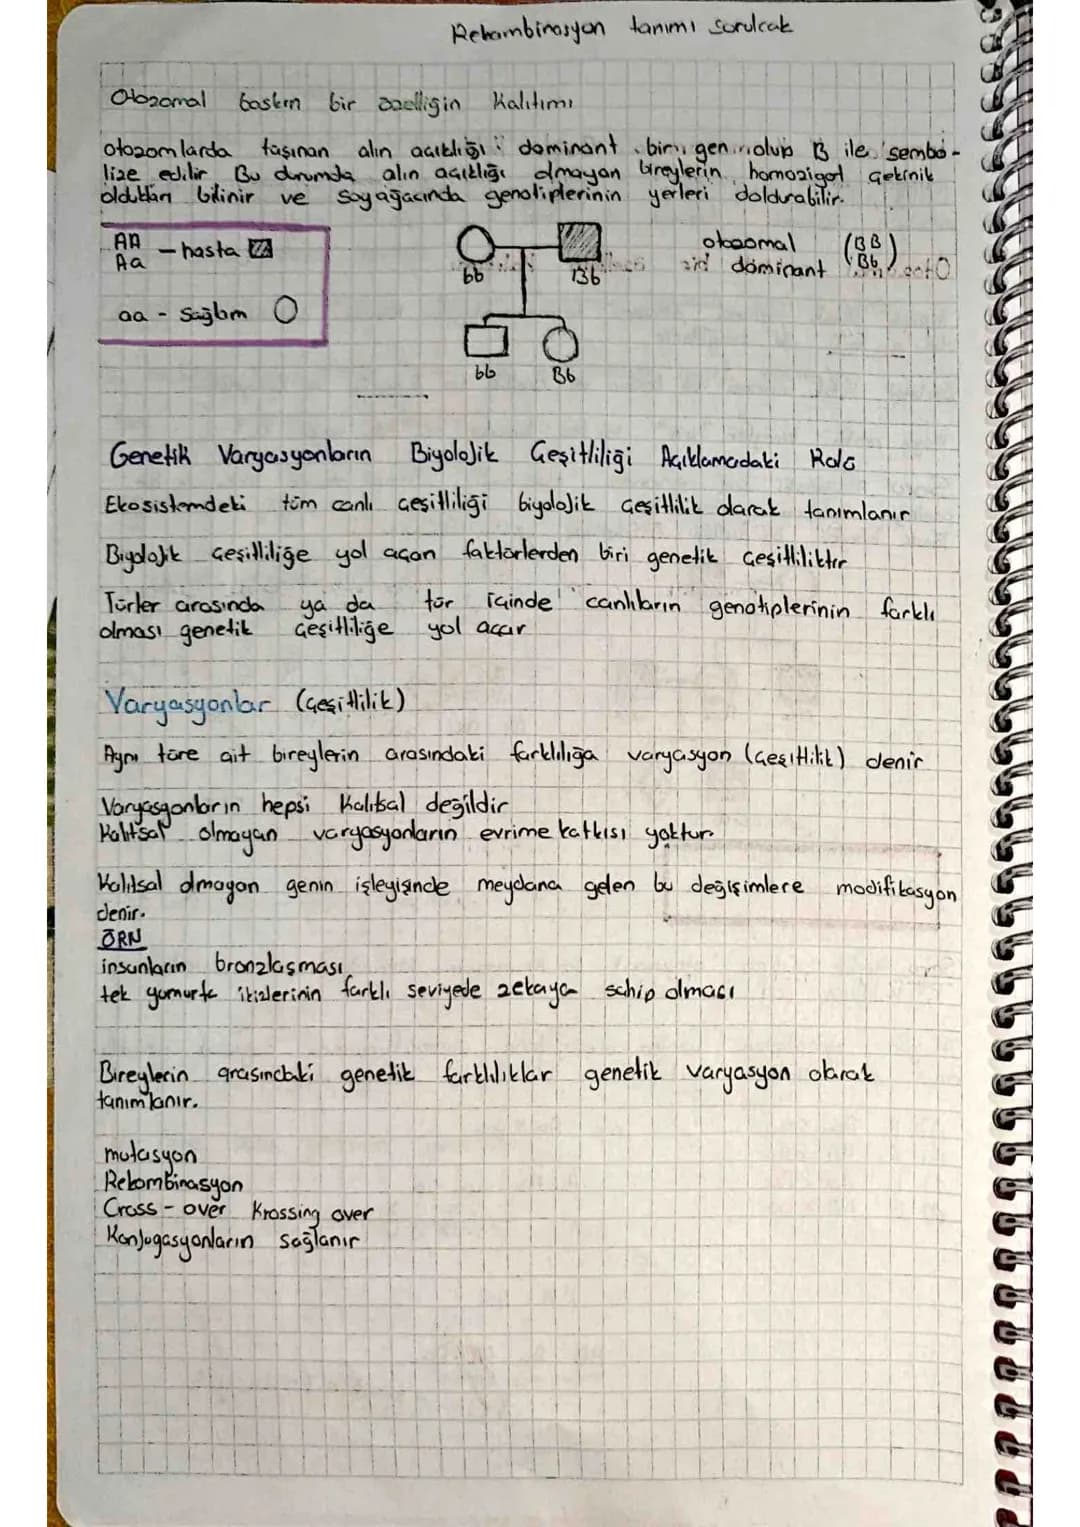 Rekombinasyon tanımı sorulcak
Otozomal baskın bir özelliğin Kalıtımı
otozomlarda taşınan alın açıklığı dominant bir gen olup B ile sembo-
lize edilir Bu durumda alın açıklığı olmayan bireylerin homozigot çekinik
oldukları bilinir ve soyağacında genotiplerinin yerleri doldurabilir.
AA
Aa - hasta
aa - Sağlam
bb Bb
bb Bb
otozomal (BB)
dominant (Bb)
Genetik Varyasyonların Biyolojik Çeşitliliği Açıklamadaki Rolü
Ekosistemdeki tüm canlı çeşitliliği biyolojik çeşitlilik olarak tanımlanır
Biyolojik çeşitliliğe yol açan faktörlerden biri genetik çeşitliliktir
Türler arasında ya da tür içinde canlıların genotiplerinin farklı
olması genetik çeşitliliğe yol açar
Varyasyonlar (Çeşitlilik)
Aynı türe ait bireylerin arasındaki farklılığa varyasyon (Çeşitlilik) denir
Varyasyonların hepsi Kalıtsal değildir
Kalıtsal olmayan varyasyonların evrime katkısı yoktur
Kalıtsal olmayan genin işleyişinde meydana gelen bu değişimlere modifikasyon
denir.
ÖRN
insanların bronzlaşması
tek yumurta ikizlerinin farklı seviyede zekaya sahip olması
Bireylerin arasındaki genetik farklılıklar genetik varyasyon olarak
tanımlanır.
mutasyon
Rekombinasyon
Cross - over Krossing over
Konjugasyonların sağlanır